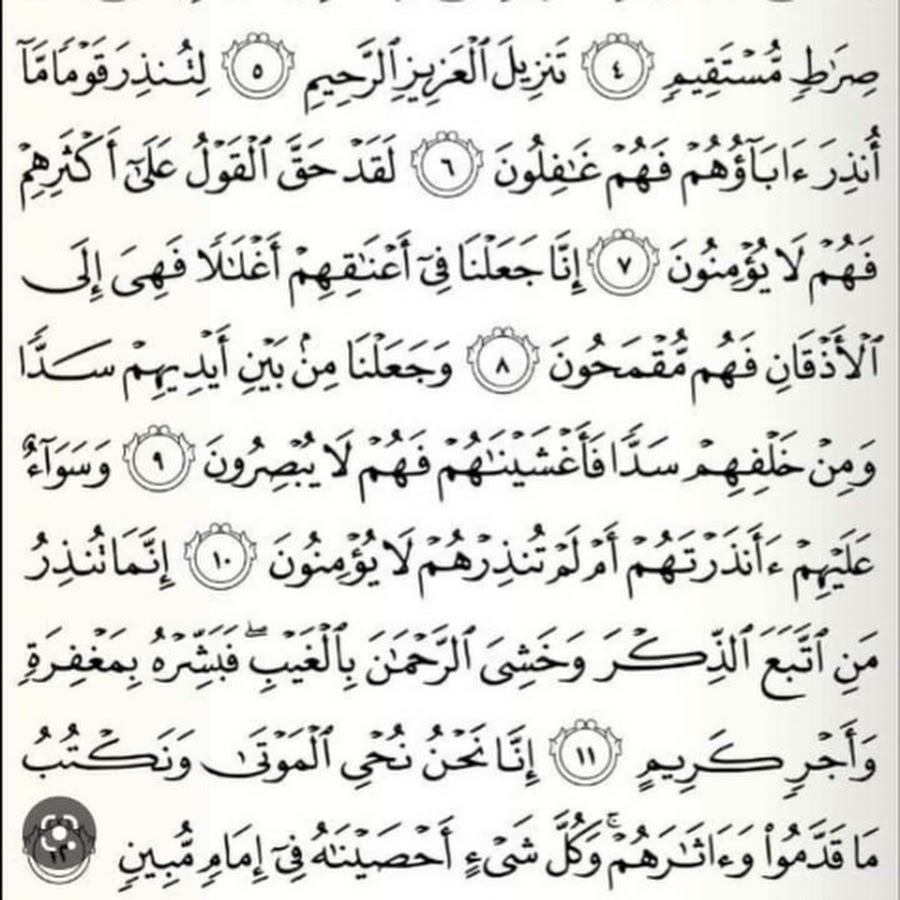 صِرَٰطٖ مُّسۡتَقِيمٖ ٤ تَنزِيلَ ٱلۡعَزِيزِ ٱلرَّحِيمِ ٥ لِتُنذِرَ قَوۡمٗا مَّآ
أُنذِرَ ءَابَآؤُهُمۡ فَهُمۡ غَٰفِلُونَ ٦ لَقَدۡ حَقَّ ٱلۡقَوۡلُ عَلَىٰٓ أَكۡثَرِهِمۡ
فَهُمۡ لَا يُؤۡمِنُونَ ٧ إِنَّا جَعَلۡنَا فِيٓ أَعۡنَٰقِهِمۡ أَغۡلَٰلٗا فَهِيَ إِلَى
ٱلۡأَذۡقَانِ فَهُم مُّقۡمَحُونَ ٨ وَجَعَلۡنَا مِنۢ بَيۡنِ أَيۡدِيهِمۡ سَدّٗا
وَمِنۡ خَلۡفِهِمۡ سَدّٗا فَأَغۡشَيۡنَٰهُمۡ فَهُمۡ لَا يُبۡصِرُونَ ٩ وَسَوَآءٌ
عَلَيۡهِمۡ ءَأَنذَرۡتَهُمۡ أَمۡ لَمۡ تُنذِرۡهُمۡ لَا يُؤۡمِنُونَ ١٠ إِنَّمَا تُنذِرُ
مَنِ ٱتَّبَعَ ٱلذِّكۡرَ وَخَشِيَ ٱلرَّحۡمَٰنَ بِٱلۡغَيۡبِۖ فَبَشِّرۡهُ بِمَغۡفِرَةٖ
وَأَجۡرٖ كَرِيمٍ ١١ إِنَّا نَحۡنُ نُحۡيِ ٱلۡمَوۡتَىٰ وَنَكۡتُبُ
مَا قَدَّمُواْ وَءَاثَٰرَهُمۡۚ وَكُلَّ شَيۡءٍ أَحۡصَيۡنَٰهُ فِيٓ إِمَامٖ مُّبِينٖ ١٢